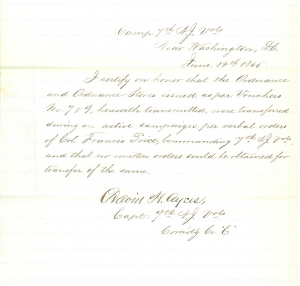 Camp 7th N.J. Vols
Near Washington, D.C.
June 14th 1865.
I certify on honor that the Ordnance
and Ordnance Stores issued as per Vouchers
No 7 & 9, herewith transmitted, were transferred
during an active campaign per verbal orders
of Col. Francis Price, commanding 7th N.J. Vols,
and that no written orders could be obtained for
transfer of the same.
H. Ayres,
Capt. 7th N.J. Vols
Comdg Co "C"